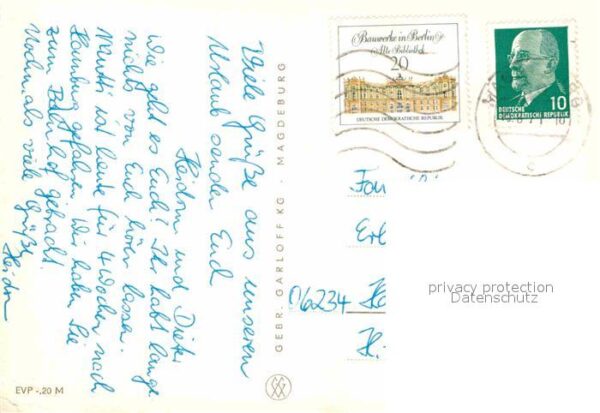 Viele Grüße aus unseren
Urlaub sendet Euch
Heidrun und Dieter
Wie geht es Euch! Ihr habt lange
nichts von Euch hören lassen.
Mutti ist heute für 4 Wochen nach
Hamburg gefahren. Wir haben Sie
zum Bahnhof gebracht.
Nochmals viele Grüße
Heidrun
GEBR. GARLOFF KG · MAGDEBURG
EVP -,20 M
Bauwerke in Berlin
Alte Bibliothek
20
DEUTSCHE DEMOKRATISCHE REPUBLIK
10
DEUTSCHE
DEMOKRATISCHE REPUBLIK
Fam
Erl
06234
privacy protection
Datenschutz